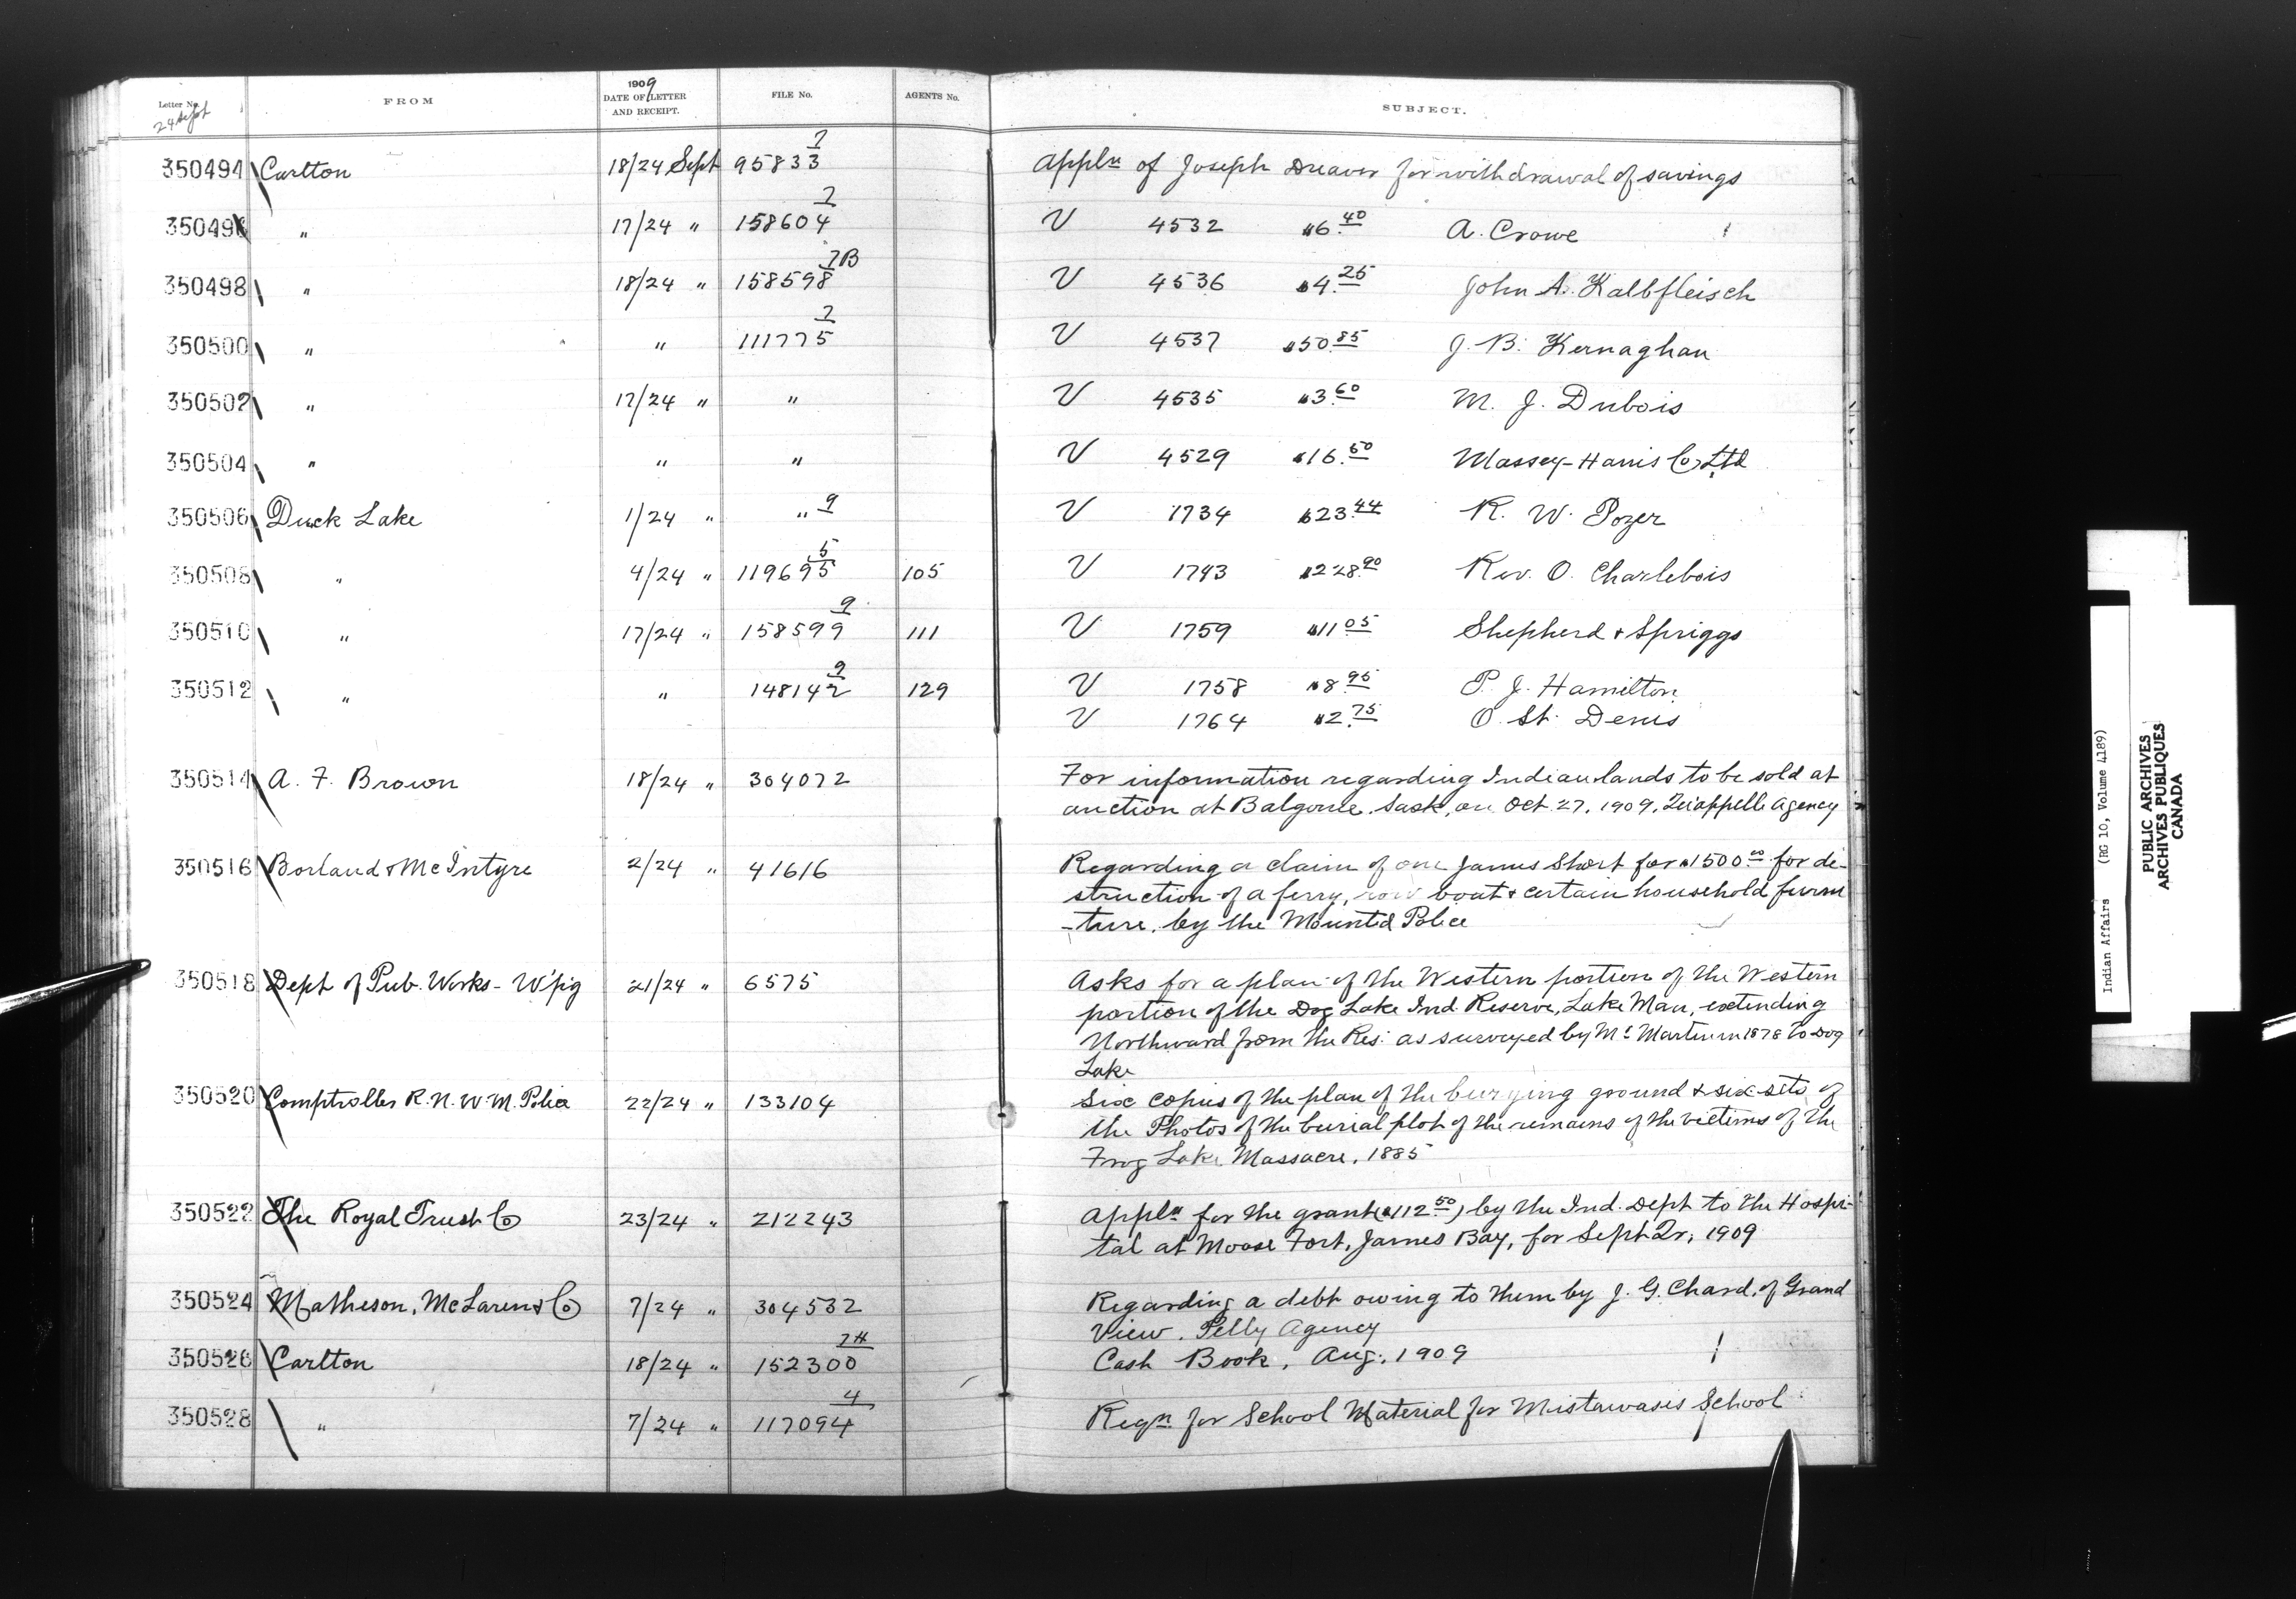 Letter No. FROM 1909 DATE OF LETTER AND RECEIPT. FILE No. AGENTS No. SUBJECT.
24 Sept
350494 Carlton 18/24 Sept 95833 7 Appln of Joseph Dreaver for withdrawal of savings
350496 " 17/24 " 158604 7 V 4532 $6.40 A. Crowe
350498 " 18/24 " 158598 7B V 4536 $4.25 John A. Kalbfleisch
350500 " " 111775 7 V 4537 $50.85 J. B. Kernaghan
350502 " 17/24 " " V 4535 $3.60 M. J. Dubois
350504 " " " V 4529 $16.50 Massey-Harris Co Ltd
350506 Duck Lake 1/24 " " 9 V 1734 $23.44 R. W. Pozer
350508 " 4/24 " 119695 5 105 V 1743 $228.90 Rev. O. Charlebois
350510 " 17/24 " 158599 9 111 V 1759 $11.05 Shepherd & Spriggs
350512 " " 148142 9 129 V 1758 $8.95 P. J. Hamilton
V 1764 $2.75 O. St. Denis
350514 A. F. Brown 18/24 " 304072 For information regarding Indian lands to be sold at
auction at Balgonie, Sask, on Oct. 27, 1909, Qu'appelle Agency
350516 Borland & McIntyre 2/24 " 41616 Regarding a claim of one James Short for $1500.00 for de-
struction of a ferry, row boat & certain household furni
-ture, by the Mounted Police
350518 Dept of Pub. Works - W'pig 21/24 " 6575 Asks for a plan of the Western portion of the Western
portion of the Dog Lake Ind. Reserve, Lake Man, extending
Northward from the Res: as surveyed by Mr Martin in 1878 to Dog
Lake
350520 Comptroller R.N.W.M. Police 22/24 " 133104 Six copies of the plan of the burying ground & six sets of
the Photos of the burial plot of the remains of the victims of the
Frog Lake Massacre, 1885
350522 The Royal Trust Co 23/24 " 212243 Appln for the grant ($112.50) by the Ind. Dept to the Hospi-
tal at Moose Fort, James Bay, for Sept Qr, 1909
350524 Matheson, McLaren & Co 7/24 " 304532 Regarding a debt owing to them by J. G. Chard, of Grand
View, Pelly Agency
350526 Carlton 18/24 " 152300 7H Cash Book, Aug. 1909
350528 " 7/24 " 117094 4 Reqn for School Material for Mistawasis School
Indian Affairs (RG 10, Volume 4189)
PUBLIC ARCHIVES
ARCHIVES PUBLIQUES
CANADA